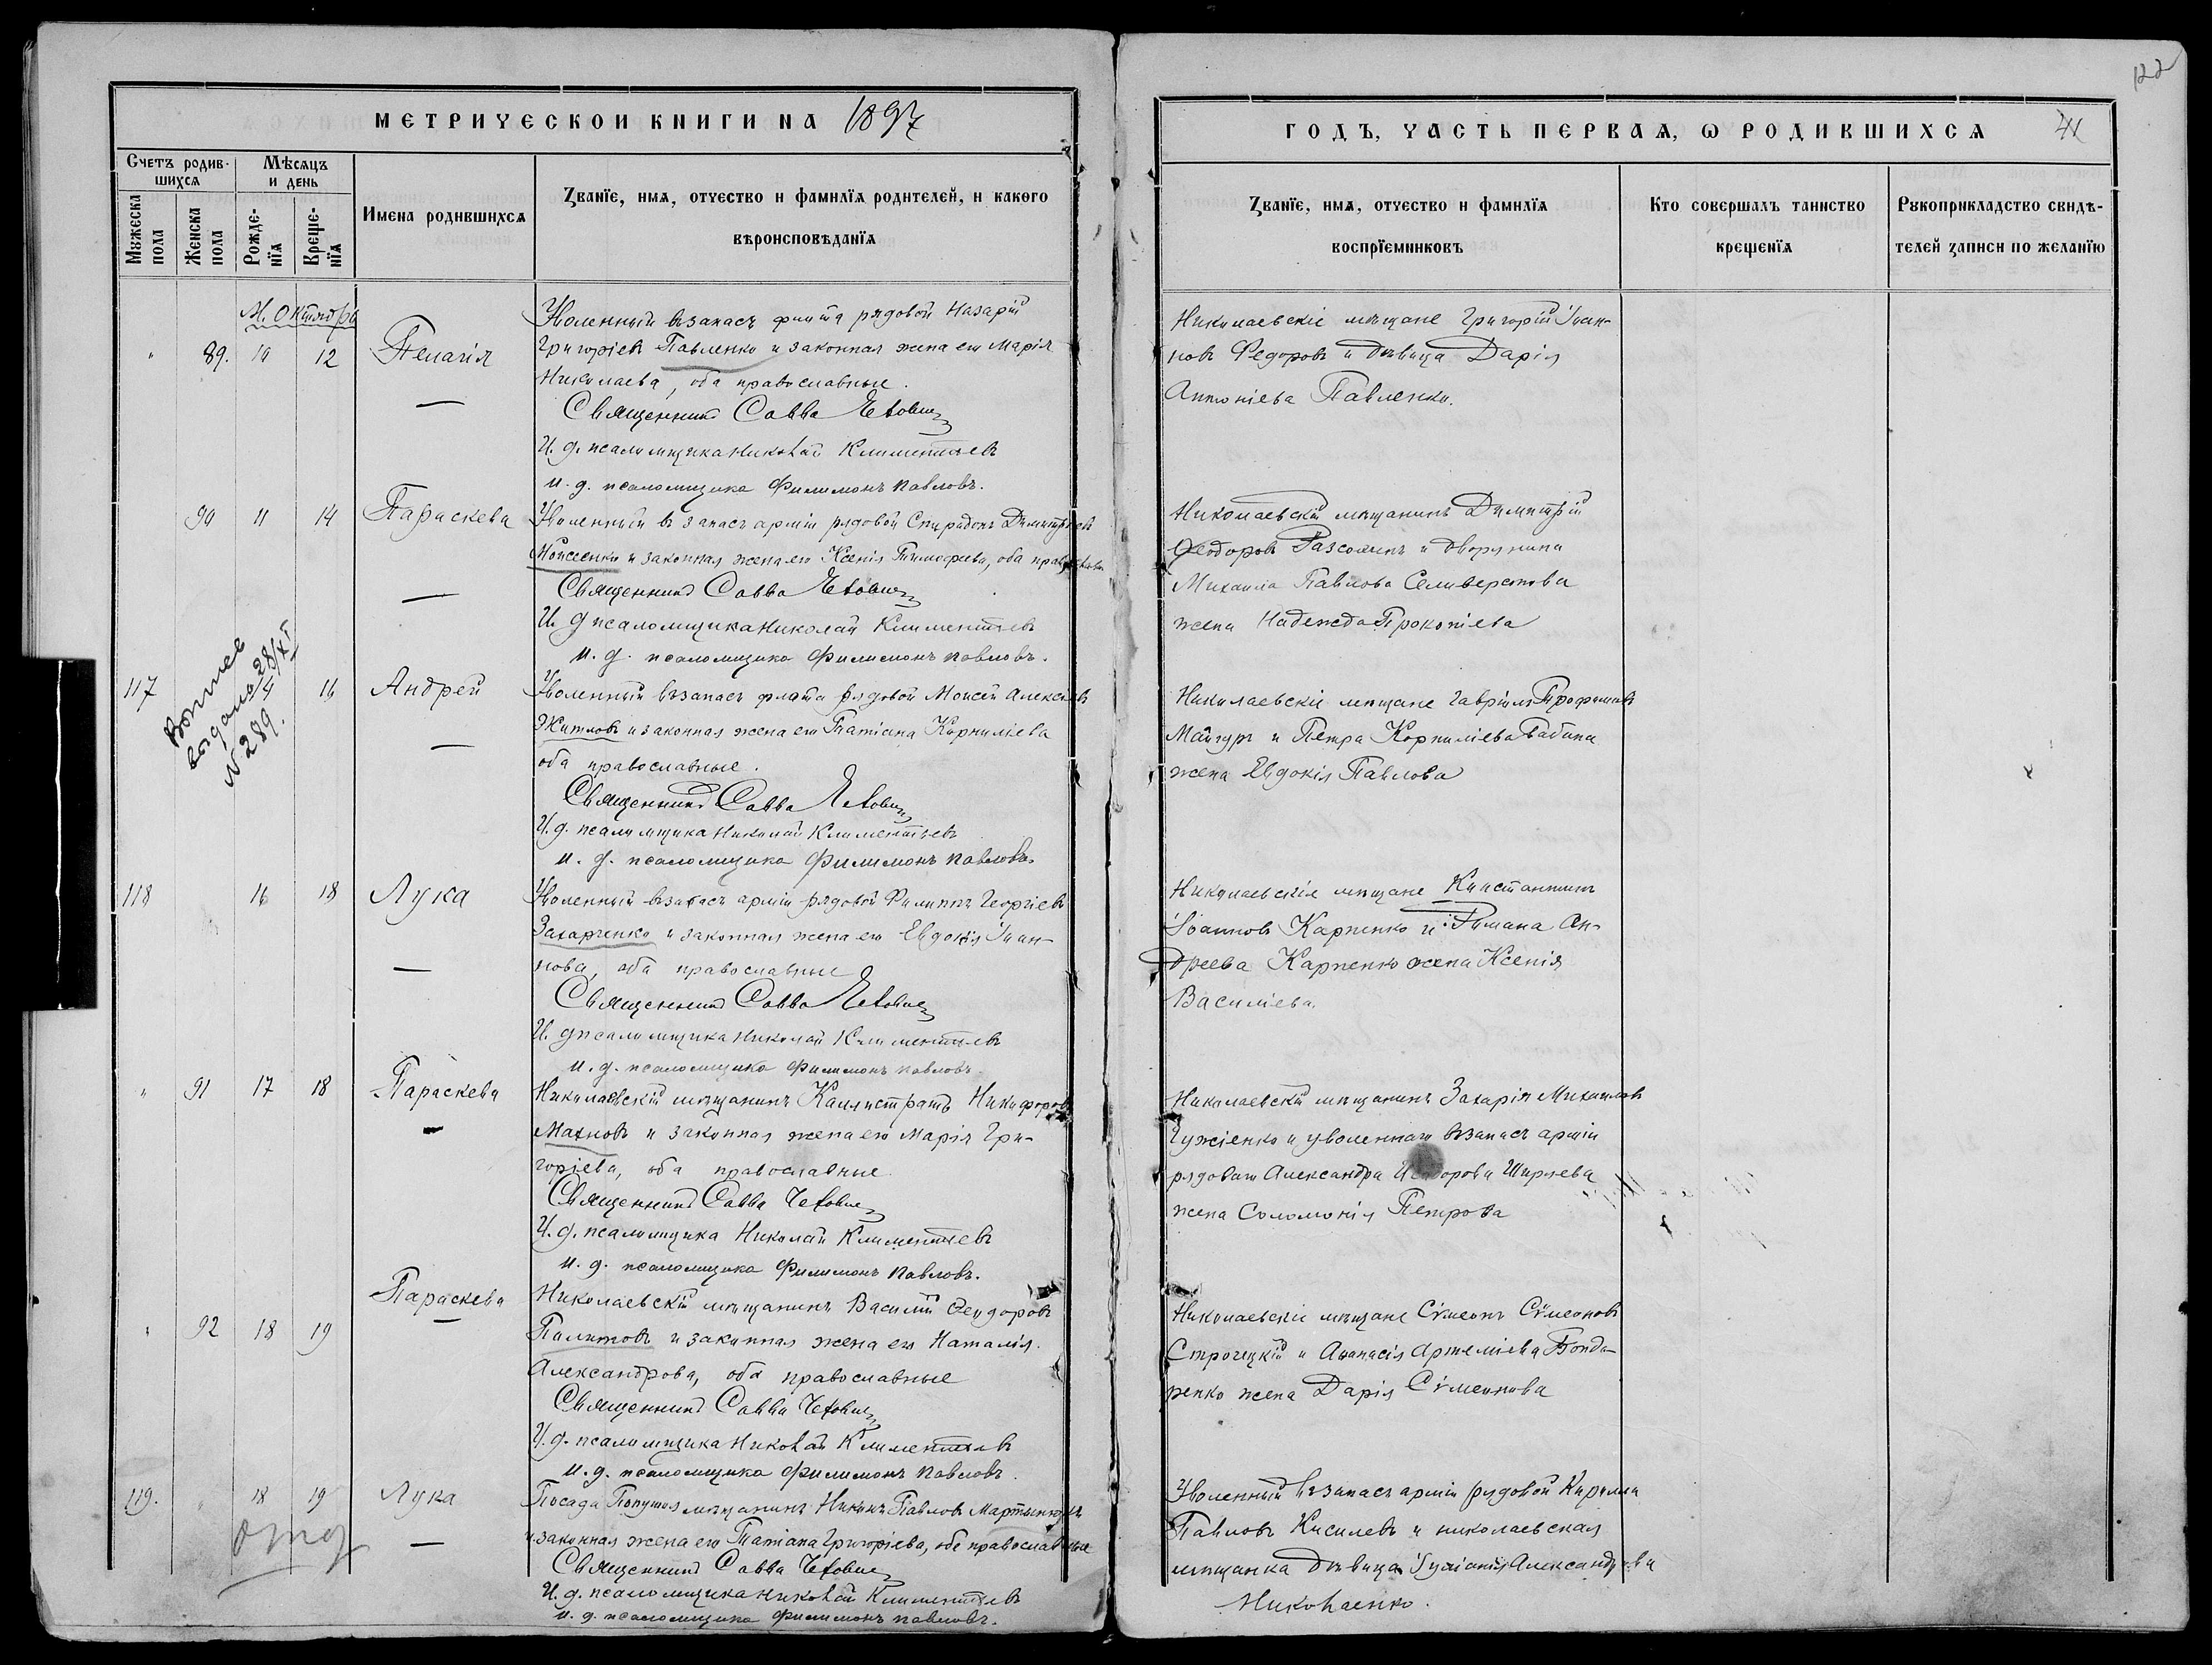 122
МЕТРИЧЕСКОЙ КНИГИ НА 1897
ГОДЪ, ЧАСТЬ ПЕРВАЯ, Ѡ РОДИВШИХСЯ
41
Счетъ родив-
шихся
Мѣсяцъ
и день
Мужеска
пола
Женска
пола
Рожде-
нїя
Креще-
нїя
Имена родившихся
Званїе, имя, отчество и фамилїя родителей, и какого
вѣроисповѣданїя
М. Октября
89. 10 12 Пелагія
Уволенный въ запасъ флота рядовой Назарій
Григоріевъ Павленко и законная жена его Марія
Николаева, оба православные.
Священникъ Савва
И. д. псаломщика Николай Климентьевъ
и. д. псаломщика Филимонъ Павловъ.
90 11 14 Параскева
Уволенный въ запасъ арміи рядовой Спиридонъ Димитріевъ
Моисеенко и законная жена его Ксенія Тимофеева, оба православн
Священникъ Савва
И. д псаломщика Николай Климентьевъ
и. д. псаломщика Филимонъ Павловъ.
117 14 16 Андрей
выдано 28/XI
№ 289.
Уволенный въ запасъ флота рядовой Моисей Алексіевъ
Житловъ и законная жена его Татіана Корниліева
оба православные.
Священникъ Савва
И. д. псаломщика Николай Климентьевъ
и. д. псаломщика Филимонъ Павловъ.
118 16 18 Лука
Уволенный въ запасъ арміи рядовой Филиппъ Георгіевъ
Захарченко и законная жена его Евдокія Іоан-
нова, оба православные
Священникъ Савва
И. д псаломщика Николай Климентьевъ
и. д. псаломщика Филимонъ Павловъ.
" 91 17 18 Параскева
Николаевскій мѣщанинъ Каллистратъ Никифоровъ
Махновъ и законная жена его Марія Гри-
горіева, оба православные
Священникъ Савва
И. д. псаломщика Николай Климентьевъ
и. д. псаломщика Филимонъ Павловъ.
" 92 18 19 Параскева
Николаевскій мѣщанинъ Василій Ѳеодоровъ
Палитовъ и законная жена его Наталія
Александрова, оба православные
Священникъ Савва
И. д. псаломщика Николай Климентьевъ
и. д. псаломщика Филимонъ Павловъ.
119. " 18 19 Лука
Посада мѣщанинъ Павловъ
и законная жена его Татіана Григоріева, оба православные
Священникъ Савва
И. д. псаломщика Николай Климентьевъ
и. д. псаломщика Филимонъ Павловъ.
Званїе, имя, отчество и фамилїя
воспрїемниковъ
Кто совершалъ таинство
крещенїя
Рукоприкладство свидѣ-
телей записи по желанїю
Николаевскіе мѣщане Григорій Іоан-
новъ Федоровъ и дѣвица Дарія
Антоніева Павленко.
Николаевскій мѣщанинъ Димитрій
Ѳеодоровъ и дворянина
Михаила Павлова Селиверстова
жена Надежда Прокопіева
Николаевскіе мѣщане Гавріилъ Трофимовъ
и Петра Корниліева Бабина
жена Евдокія Павлова
Николаевскіе мѣщане Константинъ
Іоанновъ Карпенко и Романа Ан-
дреева Карпенко жена Ксенія
Василіева.
Николаевскій мѣщанинъ Захарія Михаиловъ
и уволеннаго въ запасъ арміи
рядоваго Александра Ширяева
жена Соломонія Петрова
Николаевскіе мѣщане Сѵмеонъ Сѵмеоновъ
Строчецкій и Аѳанасія Артеміева Бонда-
ренко жена Дарія Сѵмеонова
Уволенный въ запасъ арміи рядовой Кириллъ
Павловъ Киселевъ и николаевская
мѣщанка дѣвица Іуліанія Александрова
Николаенко.